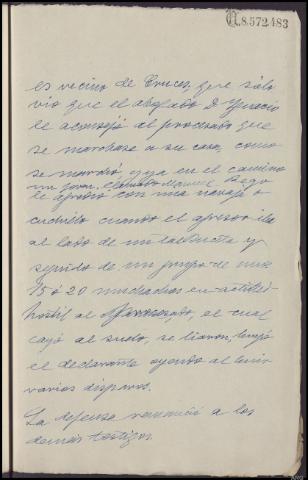 8.572.483
es vecino de Cruces, que sólo
vio que el abogado D. Ygnacio
le aconsejó al procesado que
se marchase a su casa, como
se marchó, y ya en el camino
un joven, llamado Manuel Rego
le agredió con una navaja o
cuchillo cuando el agresor iba
al lado de un tal
y
seguido de un grupo de unos
15 ó 20 muchachos en actitud
hostil al procesado, el cual
cayó al suelo, se liaron,
el declarante oyendo al huir
varios disparos.
La defensa renunció a los
demás testigos